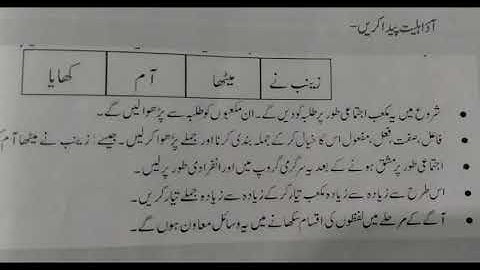 آؤ اہلیت پیدا کریں-
زینب نے میٹھا آم کھایا
شروع میں یہ مکعب اجتماعی طور پر طلبہ کو دیں گے۔ ان مکعبوں کو طلبہ سے پڑھوا لیں گے۔
فاعل، صفت، فعل، مفعول اس کا خیال کر کے جملہ بندی کرنا اور جملے پڑھوا کر لیں۔ جیسے: زینب نے میٹھا آم
اجتماعی طور پر مشق ہونے کے بعد یہ سرگرمی گروپ میں اور انفرادی طور پر لیں۔
اس طرح سے زیادہ سے زیادہ مکعب تیار کر کے زیادہ سے زیادہ جملے تیار کریں۔
آگے کے مرحلے میں لفظوں کی اقسام سکھانے میں یہ وسائل معاون ہوں گے۔